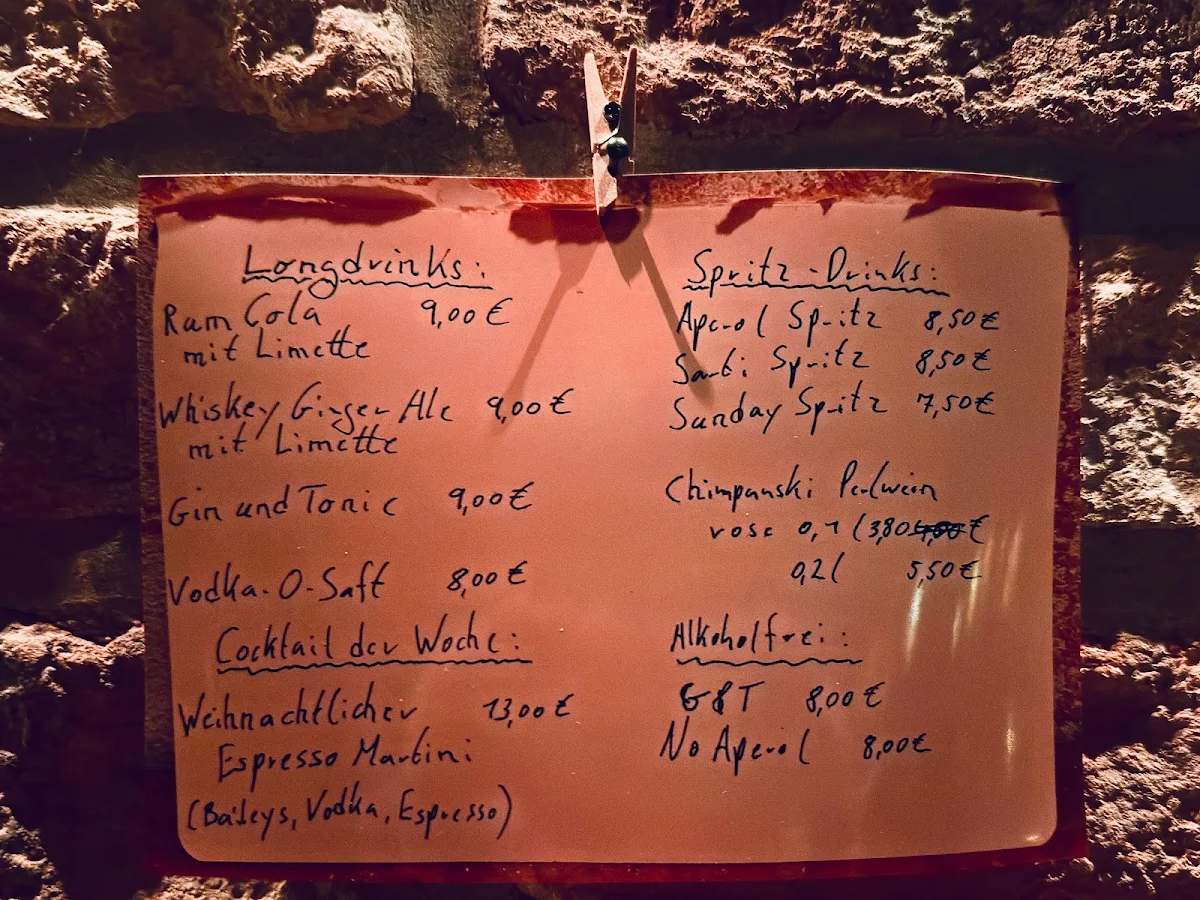 Longdrinks:
Rum Cola 9,00 €
mit Limette
Whiskey Ginger Ale 9,00 €
mit Limette
Gin und Tonic 9,00 €
Vodka-O-Saft 8,00 €
Cocktail der Woche:
Weihnachtlicher 13,00 €
Espresso Martini
(Baileys, Vodka, Espresso)
Spritz-Drinks:
Aperol Spritz 8,50 €
Sarti Spritz 8,50 €
Sunday Spritz 7,50 €
Chimpanski Perlwein
rose 0,1l 3,80 €
0,2l 5,50 €
Alkoholfrei:
G&T 8,00 €
No Aperol 8,00 €